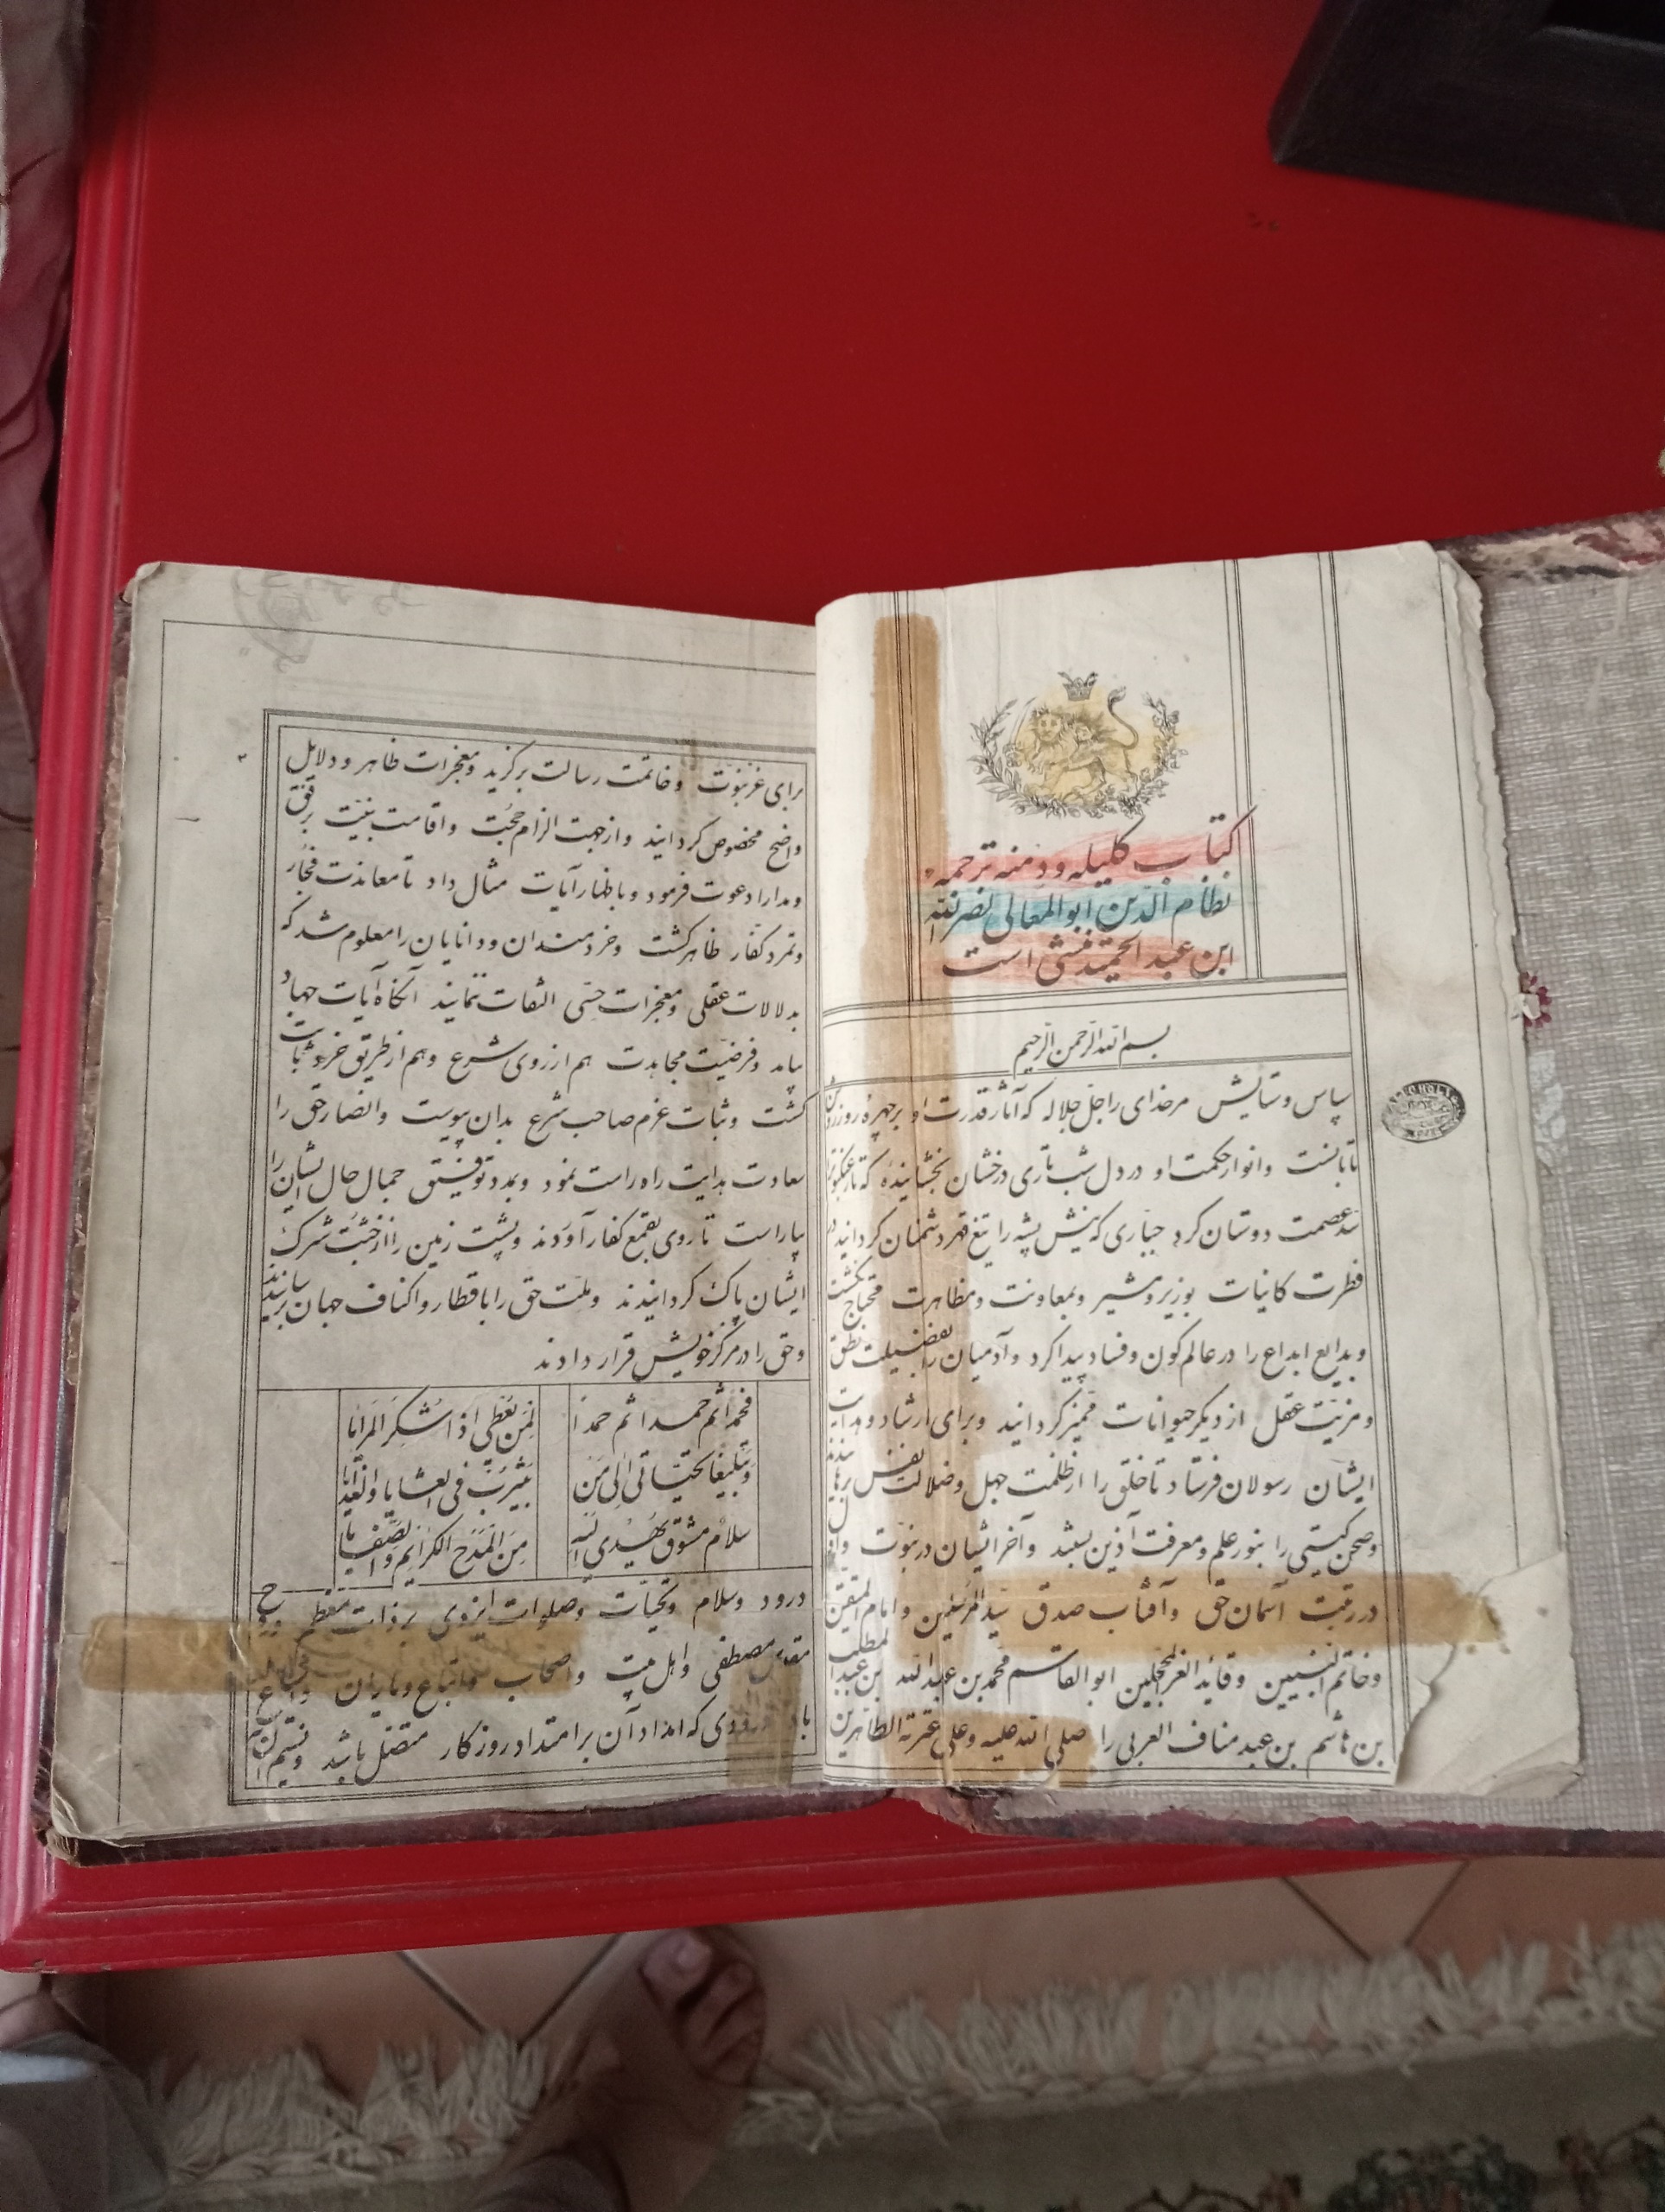 کتاب کلیله و دمنه ترجمه
نظام الدین ابوالمعالی نصرالله
ابن عبد الحمید منشی است
بسم الله الرحمن الرحیم
سپاس و ستایش مر خدای را جل جلاله که آثار قدرت او بر چهرهٔ روز روشن
تابانست و انوار حکمت او در دل شب تاری درخشان بخشایندهٔ که تار عنکبوت را
سد عصمت دوستان کرد جباری که نیش پشه را تیغ قهر دشمنان کردانید در
فطرت کاینات بوزیر و مشیر و بمعاونت و مظاهرت محتاج نکشت
و بدایع ابداع را در عالم کون و فساد پیدا کرد و آدمیان را بفضیلت نطق
و مزیت عقل از دیکر حیوانات ممیز کردانید و برای ارشاد و هدایت
ایشان رسولان فرستاد تا خلق را از ظلمت جهل و ضلالت برهانیدند
و صحن کیتی را بنور علم و معرفت آذین بستند و آخر ایشان در نبوت و اول
در رتبت آسمان حق و آفتاب صدق سید المرسلین و امام المتقین
و خاتم النبیین و قاید الغر المحجلین ابو القاسم محمد بن عبد الله بن عبد المطلب
بن هاشم بن عبد مناف العربی را صلی الله علیه و علی عترته الطاهرین
۲
برای عز نبوت و خاتمت رسالت برکزید و بمعجزات ظاهر و دلایل
واضح مخصوص کردانید و از جهت الزام حجت و اقامت بینت برفق
و مدارا دعوت فرمود و باظهار آیات مثال داد تا معاندت فجار
و تمرد کفار ظاهر کشت و خردمندان و دانایان را معلوم شد که
بدلالات عقلی و معجزات حسی التفات ننمایند آنکاه آیات جهاد
بیامد و فرضیت مجاهدت هم از روی شرع و هم از طریق خرد ثابت
کشت و ثبات عزم صاحب شرع بدان پیوست و انصار حق را
سعادت هدایت راه راست نمود و مدد توفیق جمال حال ایشان را
بیاراست تا روی بقمع کفار آوردند و پشت زمین را از خبث شرک
ایشان پاک کردانیدند و ملت حق را باقطار و اکناف جهان برسانیدند
و حق را در مرکز خویش قرار دادند
فحمداً ثم حمداً ثم حمداً لمن یعطی اذا شکر المزایا
و تبلیغا تحیاتی الی من بیثرب فی العشایا و الغدایا
سلام مشوق یهدی الیه من المدح الکرایم و الصفایا
درود و سلام و تحیات و صلوات ایزدی بر ذات معظم و روح
مقدس مصطفی و اهل بیت و اصحاب و اتباع و یاران و اشیاع
باد درودی که امداد آن بر امتداد روزکار متصل باشد و نسیم آن